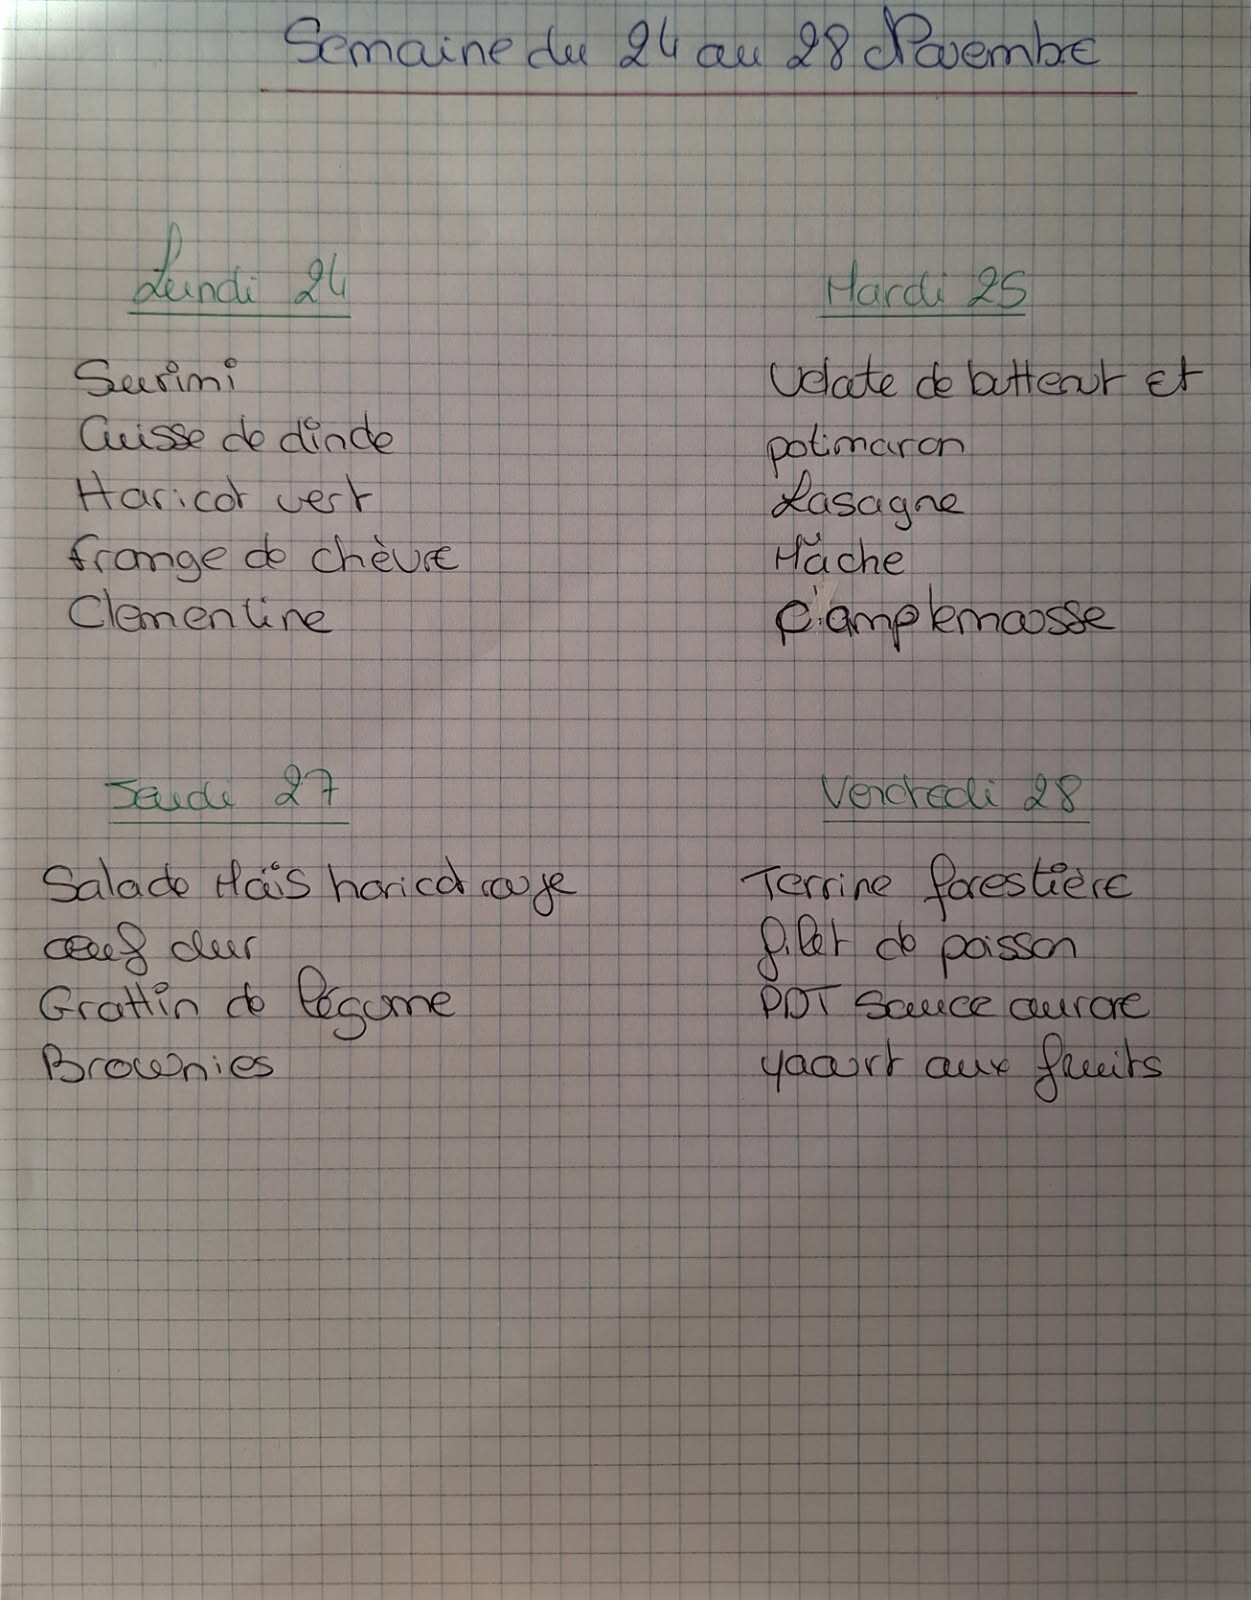 Semaine du 24 au 28 Novembre
Lundi 24
Surimi
Cuisse de dinde
Haricot vert
fromge de chèvre
Clementine
Mardi 25
Veloute de butternut et
potimaron
Lasagne
Mâche
Pamplemousse
Jeudi 27
Salade Maïs haricot rouge
oeuf dur
Grattin de légume
Brownies
Vendredi 28
Terrine forestière
filet de poisson
PDT sauce aurore
yaourt aux fruits